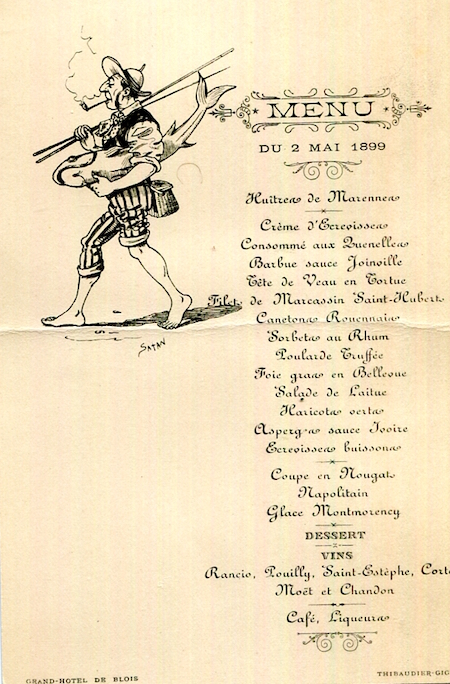 MENU
DU 2 MAI 1899
Huîtres de Marennes
Crème d'Ecrevisses
Consommé aux Quenelles
Barbue sauce Joinville
Tête de Veau en Tortue
Filet de Marcassin Saint-Hubert
Canetons Rouennais
Sorbets au Rhum
Poularde Truffée
Foie gras en Bellevue
Salade de Laitue
Haricots verts
Asperges sauce Ivoire
Ecrevisses buissons
Coupe en Nougat
Napolitain
Glace Montmorency
DESSERT
VINS
Rancio, Pouilly, Saint-Estèphe, Cort
Moët et Chandon
Café, Liqueurs
SATAN
GRAND-HOTEL DE BLOIS
THIBAUDIER-GIG